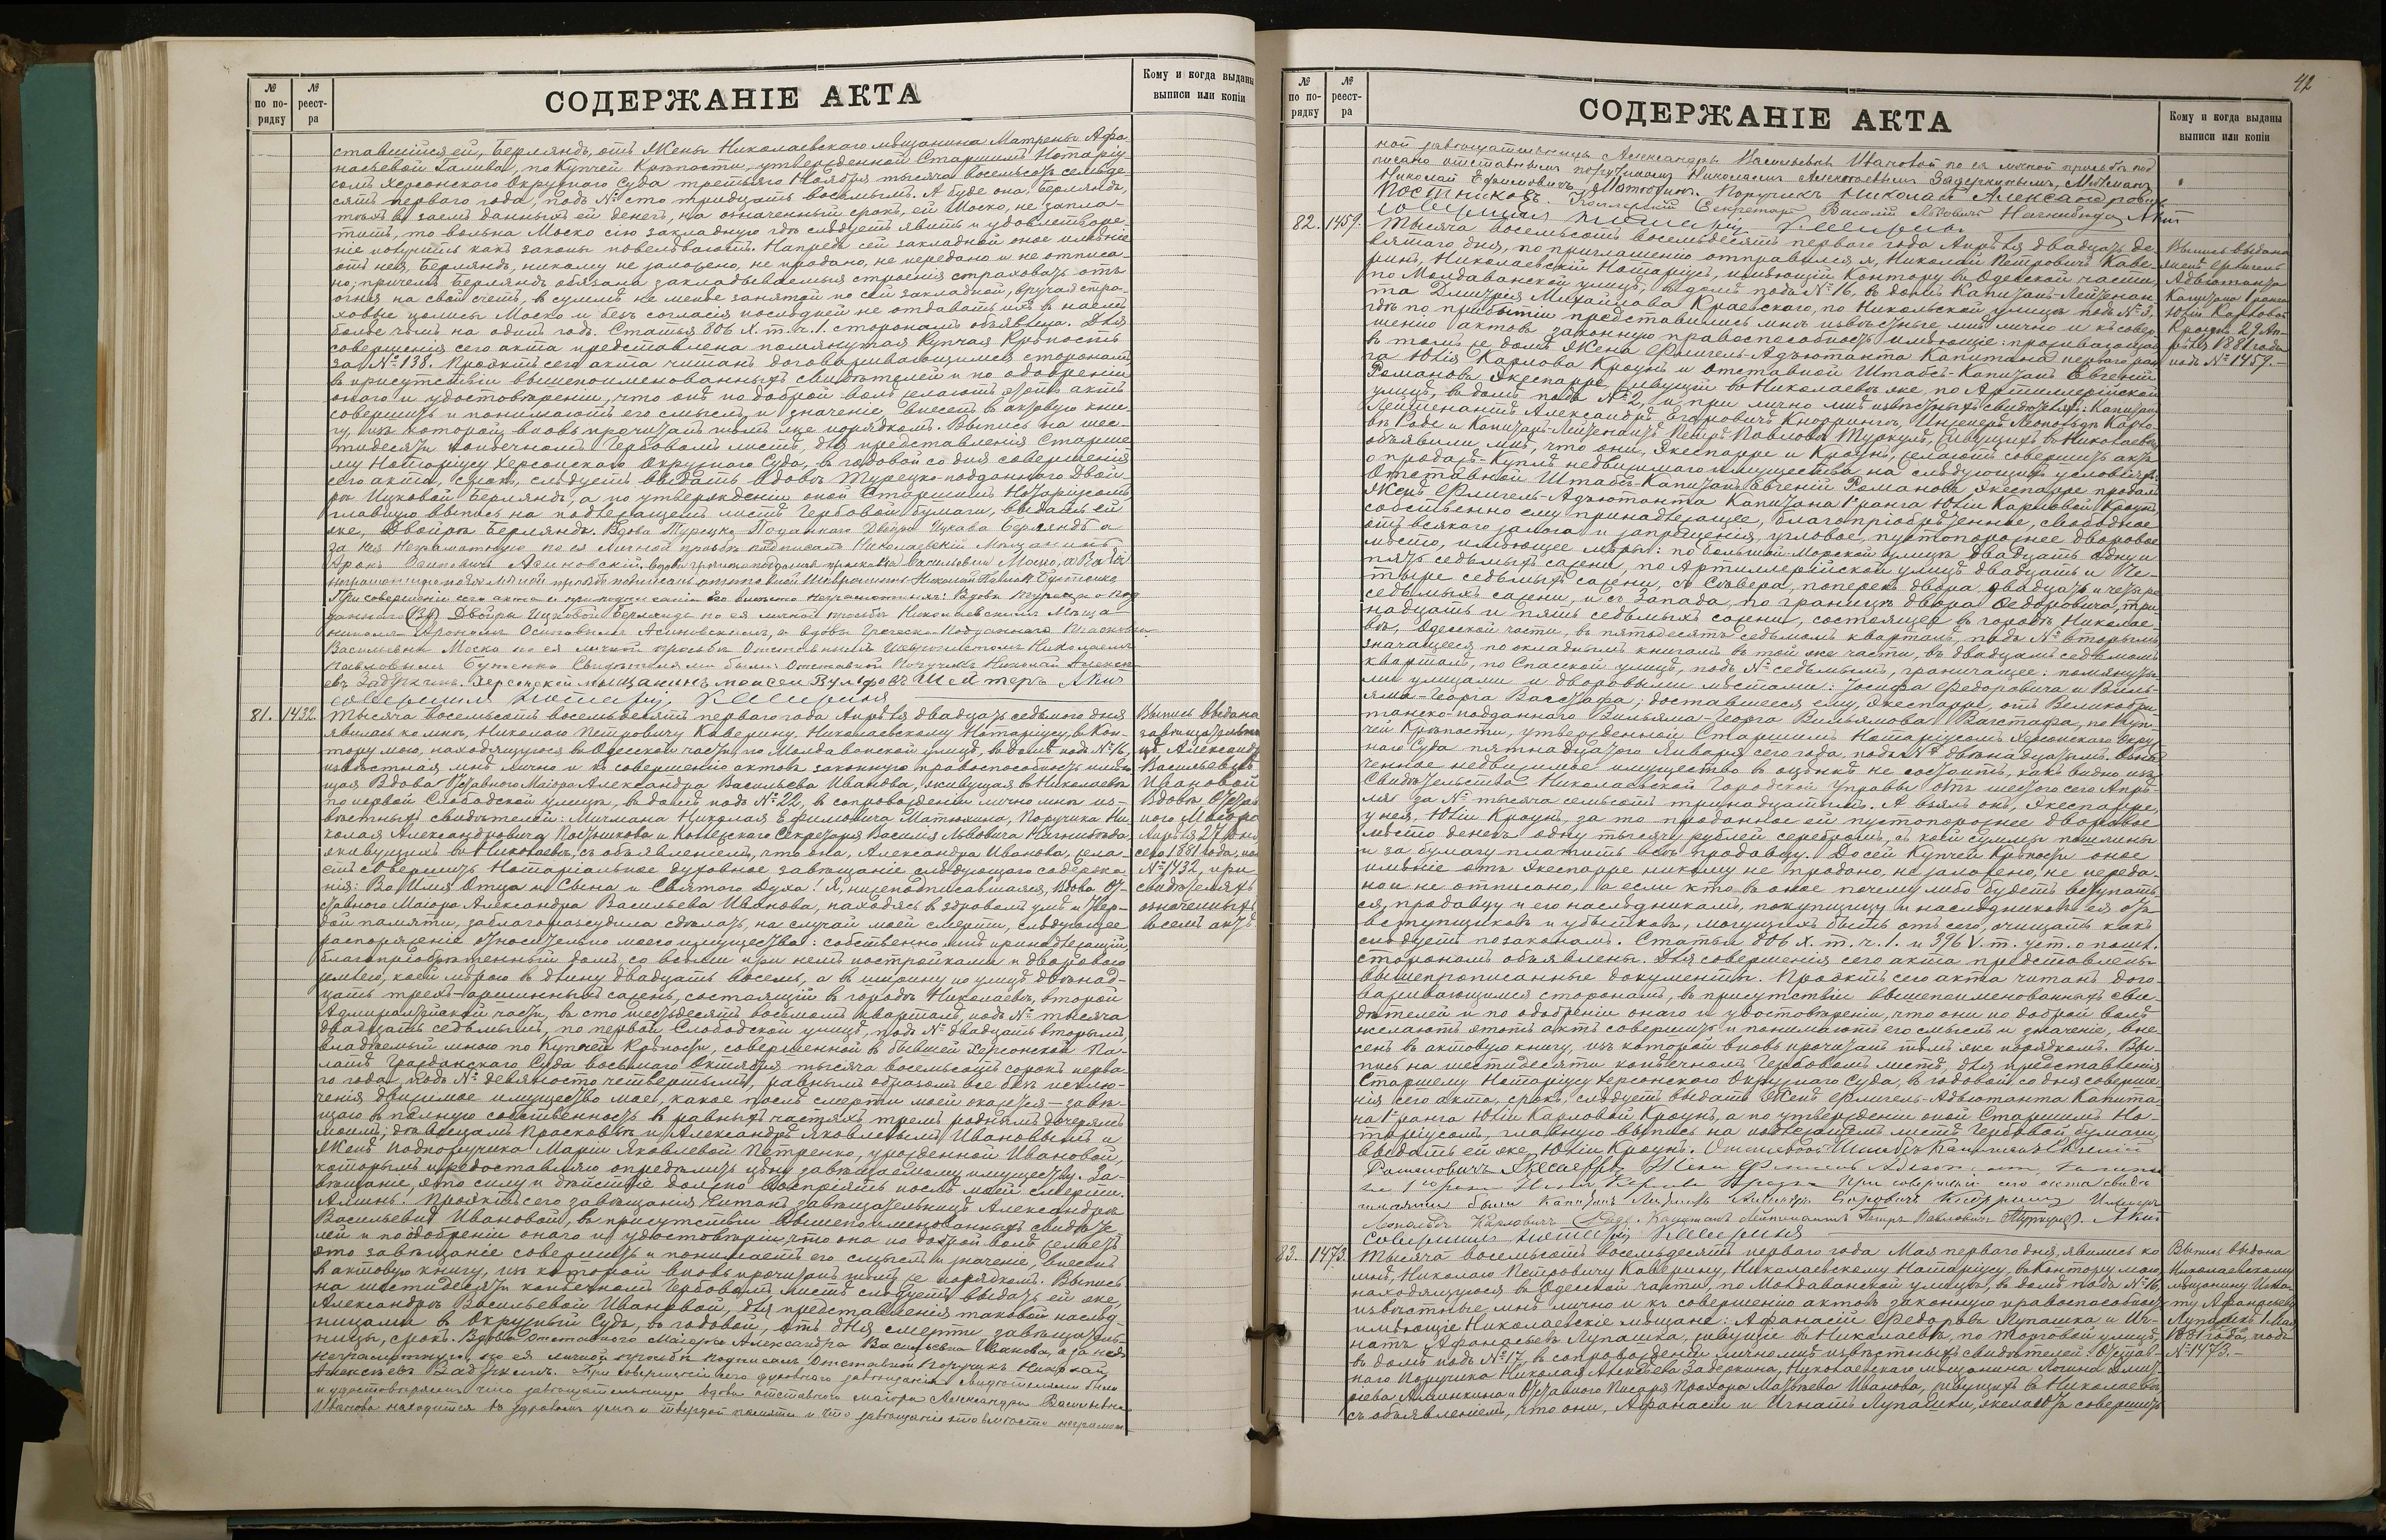 № по по-рядку
№ реест-ра
СОДЕРЖАНІЕ АКТА
Кому и когда выданы выписи или копіи
ставшійся ей, Берляндъ, отъ Жены Николаевскаго мѣщанина Матрены Афа-
насьевой Галива, по Купчей Крѣпости, утвержденной Старшимъ Нотаріу-
сомъ Херсонскаго Окружнаго Суда третьяго Ноября тысяча восемьсотъ семьде-
сятъ перваго года, подъ № сто тридцать восьмымъ. А буде она, Берляндъ,
тѣхъ въ заемъ данныхъ ей денегъ, на означенный срокъ, ей Моско, не запла-
титъ, то вольна Моско сію закладную гдѣ слѣдуетъ явить и удовлетворе-
ніе получить какъ законы повелѣваютъ. Напредъ сей закладной оное имѣніе
отъ нея, Берляндъ, никому не заложено, не продано, не передано и не отписа-
но; причемъ Берляндъ обязана закладываемыя строенія страховать отъ
огня на свой счетъ, въ суммѣ не менѣе занятой по сей закладной, вручая стра-
ховые полисы Моско и безъ согласія послѣдней не отдавать ихъ въ наемъ
болѣе чѣмъ на одинъ годъ. Статья 806 X. т. ч. 1. сторонамъ объявлена. Для
совершенія сего акта представлена помянутая Купчая Крѣпость
за № 138. Проэктъ сего акта читанъ договаривающимся сторонамъ
въ присутствіи вышепоименованныхъ свидѣтелей и по одобреніи
онаго и удостовѣреніи, что онѣ по доброй волѣ желаютъ этотъ актъ
совершить и понимаютъ его смыслъ и значеніе, внесенъ въ актовую кни-
гу, изъ которой вновь прочитанъ тѣмъ же порядкомъ. Выпись на шес-
тидесяти копѣечномъ Гербовомъ листѣ, для представленія Старше-
му Нотаріусу Херсонскаго Окружнаго Суда, въ годовой со дня совершенія
сего акта, срокъ, слѣдуетъ выдать Вдовѣ Турецко-подданнаго Двой-
рѣ Ицковой Берляндъ, а по утвержденіи оной Старшимъ Нотаріусомъ
главную выпись на подлежащемъ листѣ Гербовой бумаги, выдать ей
же, Двойрѣ Берляндъ. Вдова Турецко Поданнаго Двойра Ицкова Берляндъ а
за нея неграмотную по ея личной просьбѣ подписалъ Николаевскій Мѣщанинъ
Аронъ Осиповичъ Асиновскій. Вдова Греческо подданнаго Прасковья Васильевна Моско, а за нея
неграмотную по ея личной просьбѣ подписалъ отставной Николай Павловъ Бутенко
При совершеніи сего акта и при подписаніи его вмѣсто неграмотныхъ: Вдовы Турецко под-
даннаго Двойры Ицковой Берляндъ по ея личной просьбѣ Николаевскимъ Мѣща-
ниномъ Арономъ Осиповымъ Асиновскимъ, а вдовы Греческо-Подданнаго Прасковьи
Васильевны Моско по ея личной просьбѣ Отставнымъ Николаемъ
Павловымъ Бутенко Свидѣтелями были: Отставной Поручикъ Николай Алексе-
евъ Задеркинъ. Херсонской мѣщанинъ Моисей Вульфовъ Шейтеръ Актъ
совершилъ Нотаріусъ Каверинъ
81. 1432. Тысяча восемьсотъ восемьдесятъ перваго года Апрѣля двадцать седьмаго дня
явилась ко мнѣ, Николаю Петровичу Каверину, Николаевскому Нотаріусу, въ Кон-
тору мою, находящуюся въ Одесской части, по Молдаванской улицѣ, въ домѣ подъ № 16,
извѣстная мнѣ лично и къ совершенію актовъ законную правоспособность имѣю-
щая Вдова Отставнаго Маіора Александра Васильева Иванова, живущая въ Николаевѣ
по первой Слободской улицѣ, въ домѣ подъ № 22, въ сопровожденіи лично мнѣ из-
вѣстныхъ свидѣтелей: Мичмана Николая Ефимовича Матюхина, Поручика Ни-
колая Александровича Постникова и Коллежскаго Секретаря Василія Львовича Нагнибѣда,
живущихъ въ Николаевѣ, съ объявленіемъ, что она, Александра Иванова, жела-
етъ совершить Нотаріальное духовное завѣщаніе слѣдующаго содержа-
нія: Во Имя Отца и Сына и Святаго Духа! Я, нижеподписавшаяся, Вдова От-
ставнаго Маіора Александра Васильева Иванова, находясь въ здравомъ умѣ и твер-
дой памяти, заблагоразсудила сдѣлать, на случай моей смерти, слѣдующее
распоряженіе относительно моего имущества: собственно мнѣ принадлежащій,
благопріобрѣтенный домъ, со всѣми при немъ постройками и дворовою
землею, коей мѣрою въ длину двадцать восемь, а въ ширину по улицѣ двѣнад-
цать трехъ-аршинныхъ сажень, состоящій въ городѣ Николаевѣ, второй
Адмиралтейской части, въ сто шестьдесятъ восьмомъ кварталѣ, подъ № тысяча
двадцать седьмымъ, по первой Слободской улицѣ, подъ № двадцать вторымъ,
владѣемый мною по Купчей Крѣпости, совершенной въ бывшей Херсонской Па-
латѣ Гражданскаго Суда восьмаго Октября тысяча восемьсотъ сорокъ перва-
го года, подъ № девяносто четвертымъ, равнымъ образомъ все безъ исклю-
ченія движимое имущество мое, какое послѣ смерти моей окажется—завѣ-
щаю въ полную собственность въ равныхъ частяхъ тремъ роднымъ дочерямъ
моимъ; дѣвицамъ Прасковьѣ и Александрѣ Яковлевымъ Ивановымъ и
Женѣ Подпоручика Маріи Яковлевой Петренко, урожденной Ивановой,
которымъ и предоставляю опредѣлить цѣну завѣщаемому имуществу. За-
вѣщаніе, это силу и дѣйствіе должно воспріять послѣ моей смерти.
Аминь. Проэктъ сего завѣщанія читанъ завѣщательницѣ Александрѣ
Васильевой Ивановой, въ присутствіи вышепоименованныхъ свидѣте-
лей и по одобреніи онаго и удостовѣреніи, что она по доброй волѣ желаетъ
это завѣщаніе совершить и понимаетъ его смыслъ и значеніе, внесенъ
въ актовую книгу, изъ которой вновь прочитанъ тѣмъ же порядкомъ. Выпись
на шестидесяти копѣечномъ Гербовомъ листѣ слѣдуетъ выдать ей же,
Александрѣ Васильевой Ивановой, для представленія таковой наслѣд-
ницами въ Окружный Судъ, въ годовой, отъ дня смерти завѣщатель-
ницы, срокъ. Вдова отставнаго Маіора Александра Васильевна Иванова, а за нея
неграмотную, по ея личной просьбѣ подписалъ Отставной Поручикъ Николай
Алексѣевъ Задеркинъ. При совершеніи сего духовнаго завѣщанія свидѣтелями были
и удостовѣряемъ что завѣщательница вдова отставнаго маіора Александра Васильевна
Иванова находится въ здравомъ умѣ и твердой памяти и что завѣщаніе это вмѣсто неграмот-
Выпись выдана
завѣщательни-
цѣ, Александрѣ
Васильевой
Ивановой
Вдовѣ Отстав-
наго Маіора
Апрѣля 27 дня
сего 1881 года, подъ
№ 1432, при
свидѣтеляхъ
означенныхъ
въ семъ актѣ
42
№ по по-рядку
№ реест-ра
СОДЕРЖАНІЕ АКТА
Кому и когда выданы выписи или копіи
ной завѣщательницы Александры Васильевны Ивановой по ея личной просьбѣ под-
писано отставнымъ поручикомъ Николаемъ Алексѣевымъ Задеркинымъ, Мичманъ
Николай Ефимовичъ Матюхинъ. Поручикъ Николай Александровичъ
Постниковъ. Коллежскій Секретарь Василій Львовичъ Нагнибѣда, Актъ
совершилъ Нотаріусъ Каверинъ
82. 1459. Тысяча восемьсотъ восемьдесятъ перваго года Апрѣля двадцать де-
вятаго дня, по приглашенію отправился я, Николай Петровичъ Каве-
ринъ, Николаевскій Нотаріусъ, имѣющій Контору въ Одесской части,
по Молдаванской улицѣ, въ домѣ подъ № 16, въ домъ Капитанъ-Лейтенан-
та Дмитрія Михайлова Краевскаго, по Никольской улицѣ подъ № 3.
гдѣ по прибытіи представились мнѣ извѣстные мнѣ лично и къ совер-
шенію актовъ законную правоспособность имѣющіе: проживающая
въ томъ же домѣ Жена Флигель-Адъютанта Капитана перваго ран-
га Юлія Карлова Кроунъ и отставной Штабсъ-Капитанъ Евгеній
Романовъ Якеспарре, живущій въ Николаевѣ же, по Артиллерійской
улицѣ, въ домѣ подъ № 2, и при лично мнѣ извѣстныхъ свидѣтеляхъ: Капитанъ
Лейтенантѣ Александрѣ Егоровичѣ Кноррингъ, Инженерѣ Леопольдѣ Карло-
вѣ Роде и Капитанъ-Лейтенантѣ Петрѣ Павловѣ Туркулъ, живущихъ въ Николаевѣ,
объявили мнѣ, что они, Якеспарре и Кроунъ, желаютъ совершить актъ
о продажѣ-Куплѣ недвижимаго имущества на слѣдующихъ условіяхъ:
Отставной Штабсъ-Капитанъ Евгеній Романовъ Якеспарре продалъ
Женѣ Флигель-Адъютанта Капитана 1го ранга Юліи Карловой Кроунъ,
собственно ему принадлежащее, благопріобрѣтенное, свободное
отъ всякаго залога и запрещенія, угловое, пустопорожнее дворовое
мѣсто, имѣющее мѣры: по большой Морской улицѣ двадцать одну и
пять седьмыхъ сажени, по Артиллерійской улицѣ двадцать и че-
тыре седьмыхъ сажени, съ Сѣвера, поперекъ двора, двадцать и четыре
седьмыхъ сажени, и съ Запада, по границѣ двора Федоровича, три-
надцать и пять седьмыхъ сажени, состоящее въ городѣ Николае-
вѣ, Одесской части, въ пятьдесятъ седьмомъ кварталѣ, подъ № вторымъ,
значащееся по окладнымъ книгамъ въ той же части, въ двадцать седьмомъ
кварталѣ, по Спасской улицѣ, подъ № седьмымъ, граничащее: помянуты-
ми улицами и дворовыми мѣстами: Іосифа Федоровича и Виль-
яма-Георга Вагстафа; доставшееся ему, Якеспарре, отъ Великобри-
танско-подданнаго Вильяма-Георга Вильямова Вагстафа, по Куп-
чей Крѣпости, утвержденной Старшимъ Нотаріусомъ Херсонскаго Окруж-
наго Суда пятнадцатаго Января сего года подъ № двѣнадцатымъ. Озна-
ченное недвижимое имущество въ оцѣнкѣ не состоитъ, какъ видно изъ
Свидѣтельства Николаевской Городской Управы отъ шестаго сего Апрѣ-
ля за № тысяча семьсотъ тринадцатымъ. А взялъ онъ, Якеспарре,
у нея, Юліи Кроунъ, за то проданное ей пустопорожнее дворовое
мѣсто денегъ одну тысячу рублей серебромъ, съ коей суммы пошлины
и за бумагу платить всѣ продавцу. До сей Купчей Крѣпости оное
имѣніе отъ Якеспарре никому не продано, не заложено, не переда-
но и не отписано, а если кто въ оное почему либо будетъ вступать-
ся, продавцу и его наслѣдникамъ, покупщицу и наслѣдниковъ ея отъ
вступщиковъ и убытковъ, могущихъ быть отъ сего, очищать какъ
слѣдуетъ по законамъ. Статьи 806 X. т. ч. 1. и 396 V. т. уст. о пошл.
сторонамъ объявлены. Для совершенія сего акта представлены
вышепрописанные документы. Проэктъ сего акта читанъ дого-
варивающимся сторонамъ, въ присутствіи вышепоименованныхъ сви-
дѣтелей и по одобреніи онаго и удостовѣреніи, что они по доброй волѣ
желаютъ этотъ актъ совершить и понимаютъ его смыслъ и значеніе, вне-
сенъ въ актовую книгу, изъ которой вновь прочитанъ тѣмъ же порядкомъ. Вы-
пись на шестидесяти копѣечномъ Гербовомъ листѣ, для представленія
Старшему Нотаріусу Херсонскаго Окружнаго Суда, въ годовой со дня соверше-
нія сего акта, срокъ, слѣдуетъ выдать Женѣ Флигель-Адъютанта Капита-
на 1го ранга Юліи Карловой Кроунъ, а по утвержденіи оной Старшимъ Но-
таріусомъ, главную выпись на подлежащемъ листѣ Гербовой бумаги,
выдать ей же, Юліи Кроунъ. Отставной Штабсъ Капитанъ Евгеній
Романовичъ Якеспарре. Жена Флигель Адъютанта Капита-
на 1го ранга Юлія Карлова Кроунъ При совершеніи сего акта свидѣ-
телями были Капитанъ Лейтенантъ Александръ Егоровичъ Кноррингъ Инженеръ
Леопольдъ Карловичъ Роде. Капитанъ Лейтенантъ Петръ Павловичъ Туркулъ. Актъ
совершилъ Нотаріусъ Каверинъ
83. 1473. Тысяча восемьсотъ восемьдесятъ перваго года Мая перваго дня, явились ко
мнѣ, Николаю Петровичу Каверину, Николаевскому Нотаріусу, въ Контору мою,
находящуюся въ Одесской части, по Молдаванской улицѣ, въ домѣ подъ № 16,
извѣстные мнѣ лично и къ совершенію актовъ законную правоспособность
имѣющіе Николаевскіе мѣщане: Афанасій Федоровъ Лупашка и Иг-
натъ Афанасьевъ Лупашка, живущіе въ Николаевѣ, по Торговой улицѣ,
въ домѣ подъ № 17, въ сопровожденіи лично мнѣ извѣстныхъ свидѣтелей: Отстав-
наго Поручика Николая Алексѣева Задеркина, Николаевскаго мѣщанина Логина Дмит-
ріева Алешкина и Отставнаго Писаря Прохора Матвѣева Иванова, живущихъ въ Николаевѣ,
съ объявленіемъ, что они, Афанасій и Игнатъ Лупашки, желаютъ совершить
Выпись выдана
Женѣ Флигель
Адъютанта
Капитана 1 ранга
Юліи Карловой
Кроунъ 29 Ап-
рѣля 1881 года
подъ № 1459.
Выпись выдана
Николаевскому
мѣщанину Игна-
ту Афанасьеву
Лупашкѣ 1 Мая
1881 года, подъ
№ 1473.